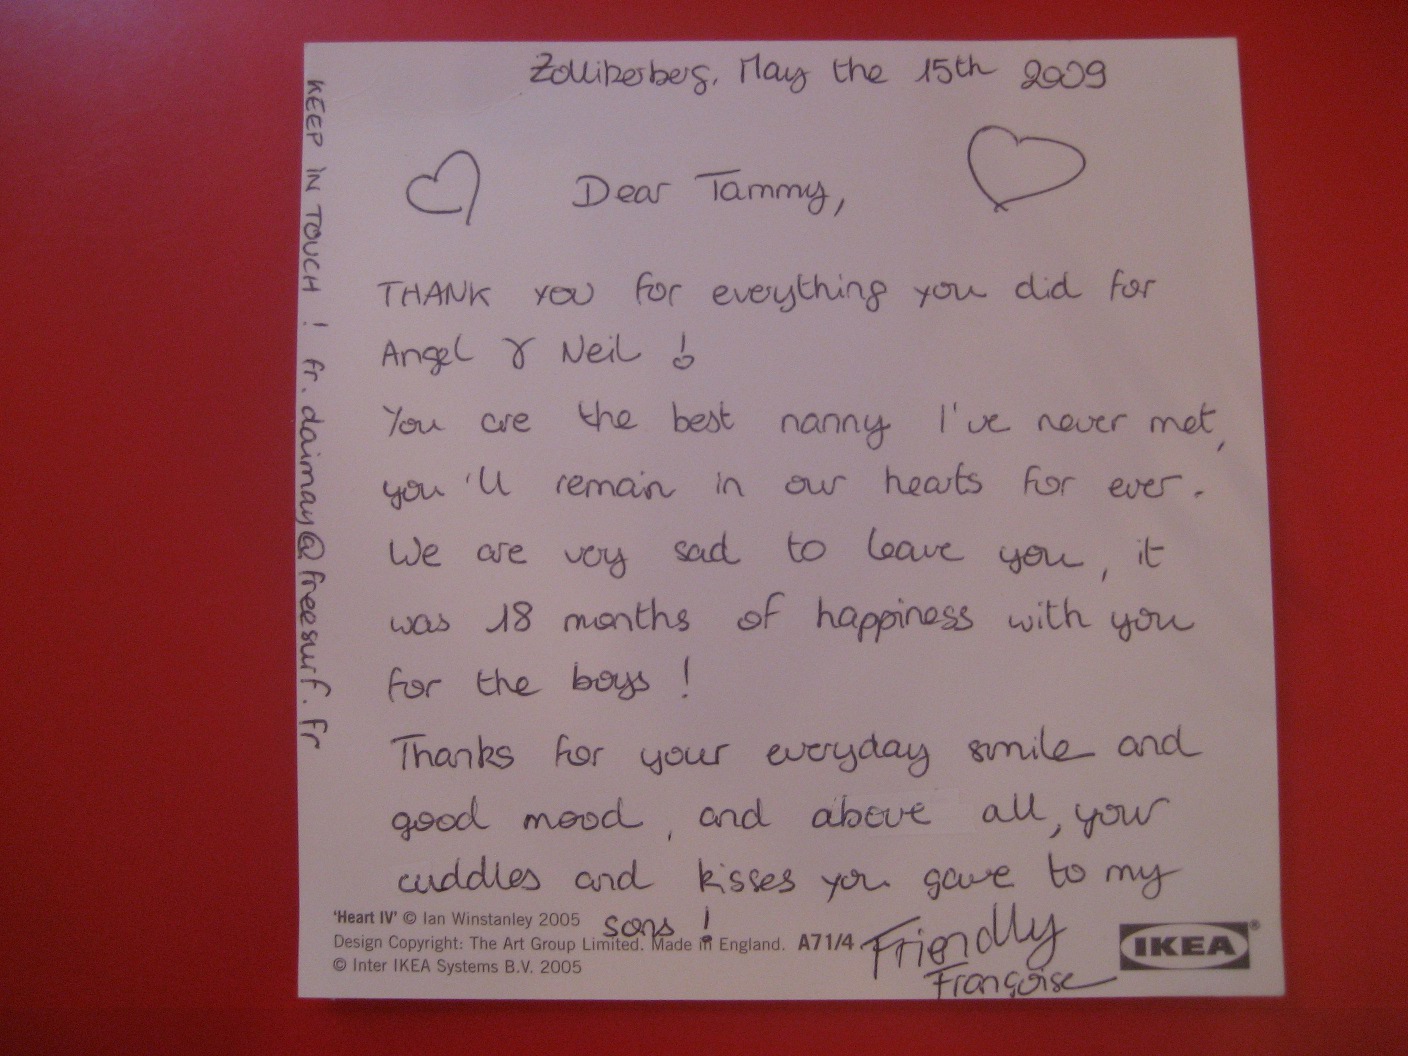 Zollikerberg, May the 15th 2009
Dear Tammy,
THANK YOU for everything you did for
Angel & Neil !
You are the best nanny I've never met,
you'll remain in our hearts for ever.
We are very sad to leave you, it
was 18 months of happiness with you
for the boys !
Thanks for your everyday smile and
good mood, and above all, your
cuddles and kisses you gave to my
sons !
Friendly
Françoise
KEEP IN TOUCH ! fr.daimay@freesurf.fr
'Heart IV' © Ian Winstanley 2005
Design Copyright: The Art Group Limited. Made in England. A71/4
© Inter IKEA Systems B.V. 2005
IKEA®